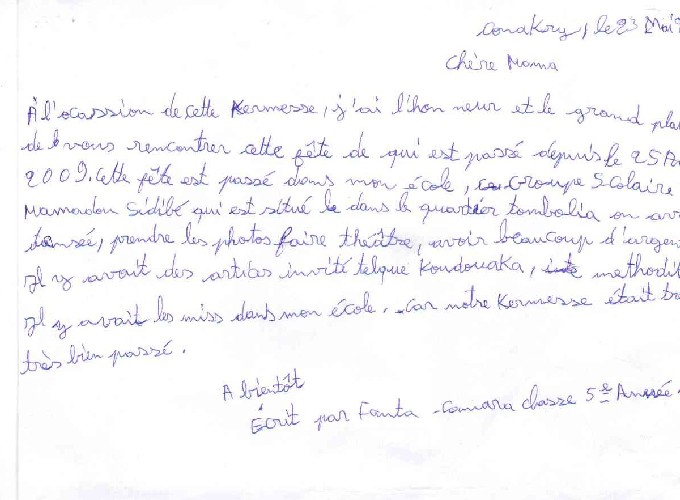 Conakry, le 23 Mai
Chère Mama
À l'ocassion de cette Kermesse, j'ai l'hon neur et le grand plai
de vous rencontrer cette fête de qui est passé depuis le 25 A
2009. Cette fête est passé dans mon école, Groupe Scolaire
Mamadou Sidibé qui est situé dans le quartier tombolia on av
dansée, prendre les photos faire théâtre, avoir beaucoup d'argen
Il y avait des artites invité telque Koudouaka, methodi
Il y avait les miss dans mon école. Car notre Kermesse était tr
très bien passé.
A bientôt
Écrit par Fanta Camara classe 5e Année.